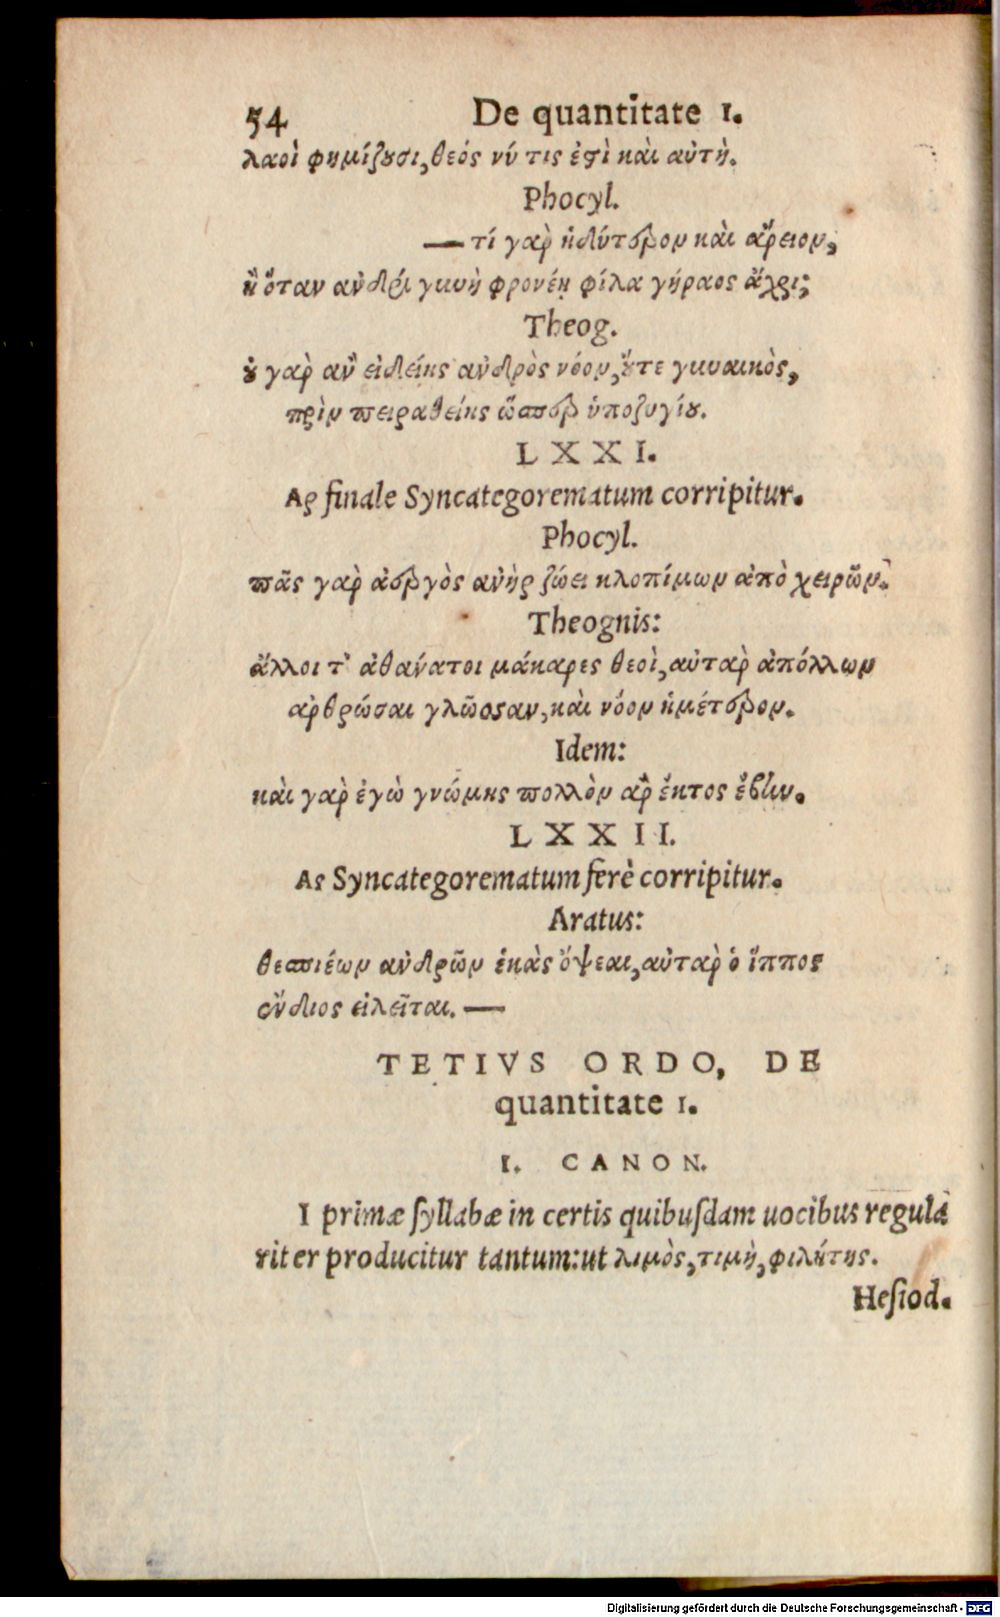 54 De quantitate ι.
λαοὶ φημίζουσι, θεός νύ τις ἐστὶ καὶ αὐτή.
Phocyl.
— τί γὰρ ἡδύτερον καὶ ἄρειον,
ἢ ὅταν ἀνδρὶ γυνὴ φρονέῃ φίλα γήραος ἄχρι;
Theog.
οὐ γὰρ ἂν εἰδείης ἀνδρὸς νόον, οὔτε γυναικὸς,
πρὶν πειραθείης ὥσπερ ὑποζυγίου.
LXXI.
Αρ finale Syncategorematum corripitur.
Phocyl.
πᾶς γὰρ ἀεργὸς ἀνὴρ ζώει κλοπίμων ἀπὸ χειρῶν.
Theognis:
ἄλλοι τ' ἀθάνατοι μάκαρες θεοὶ, αὐτὰρ ἀπόλλων
ἀρθρώσαι γλῶσσαν, καὶ νόον ἡμέτερον.
Idem:
καὶ γὰρ ἐγὼ γνώμης πολλὸν ἂρ ἐκτος ἔβην.
LXXII.
Ας Syncategorematum ferè corripitur.
Aratus:
θεσπιέων ἀνδρῶν ἑκὰς ὄψεαι, αὐτὰρ ὁ ἵππος
ἔνδιος εἰλεῖται. —
TETIVS ORDO, DE
quantitate ι.
I. CANON.
Ι primæ ſyllabæ in certis quibuſdam uocibus regula
riter producitur tantum: ut λιμὸς, τιμὴ, φιλήτης.
Heſiod.
Digitalisierung gefördert durch die Deutsche Forschungsgemeinschaft - DFG